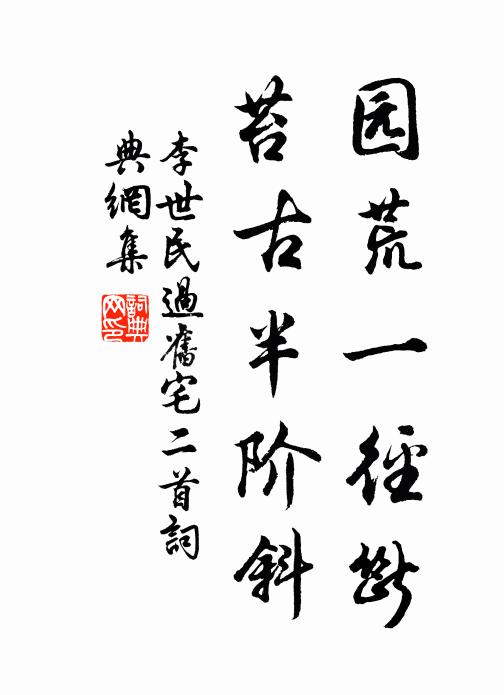 园荒一径断
苔古半阶斜
李世民過舊宅二首詞
典網集
詞典
网印